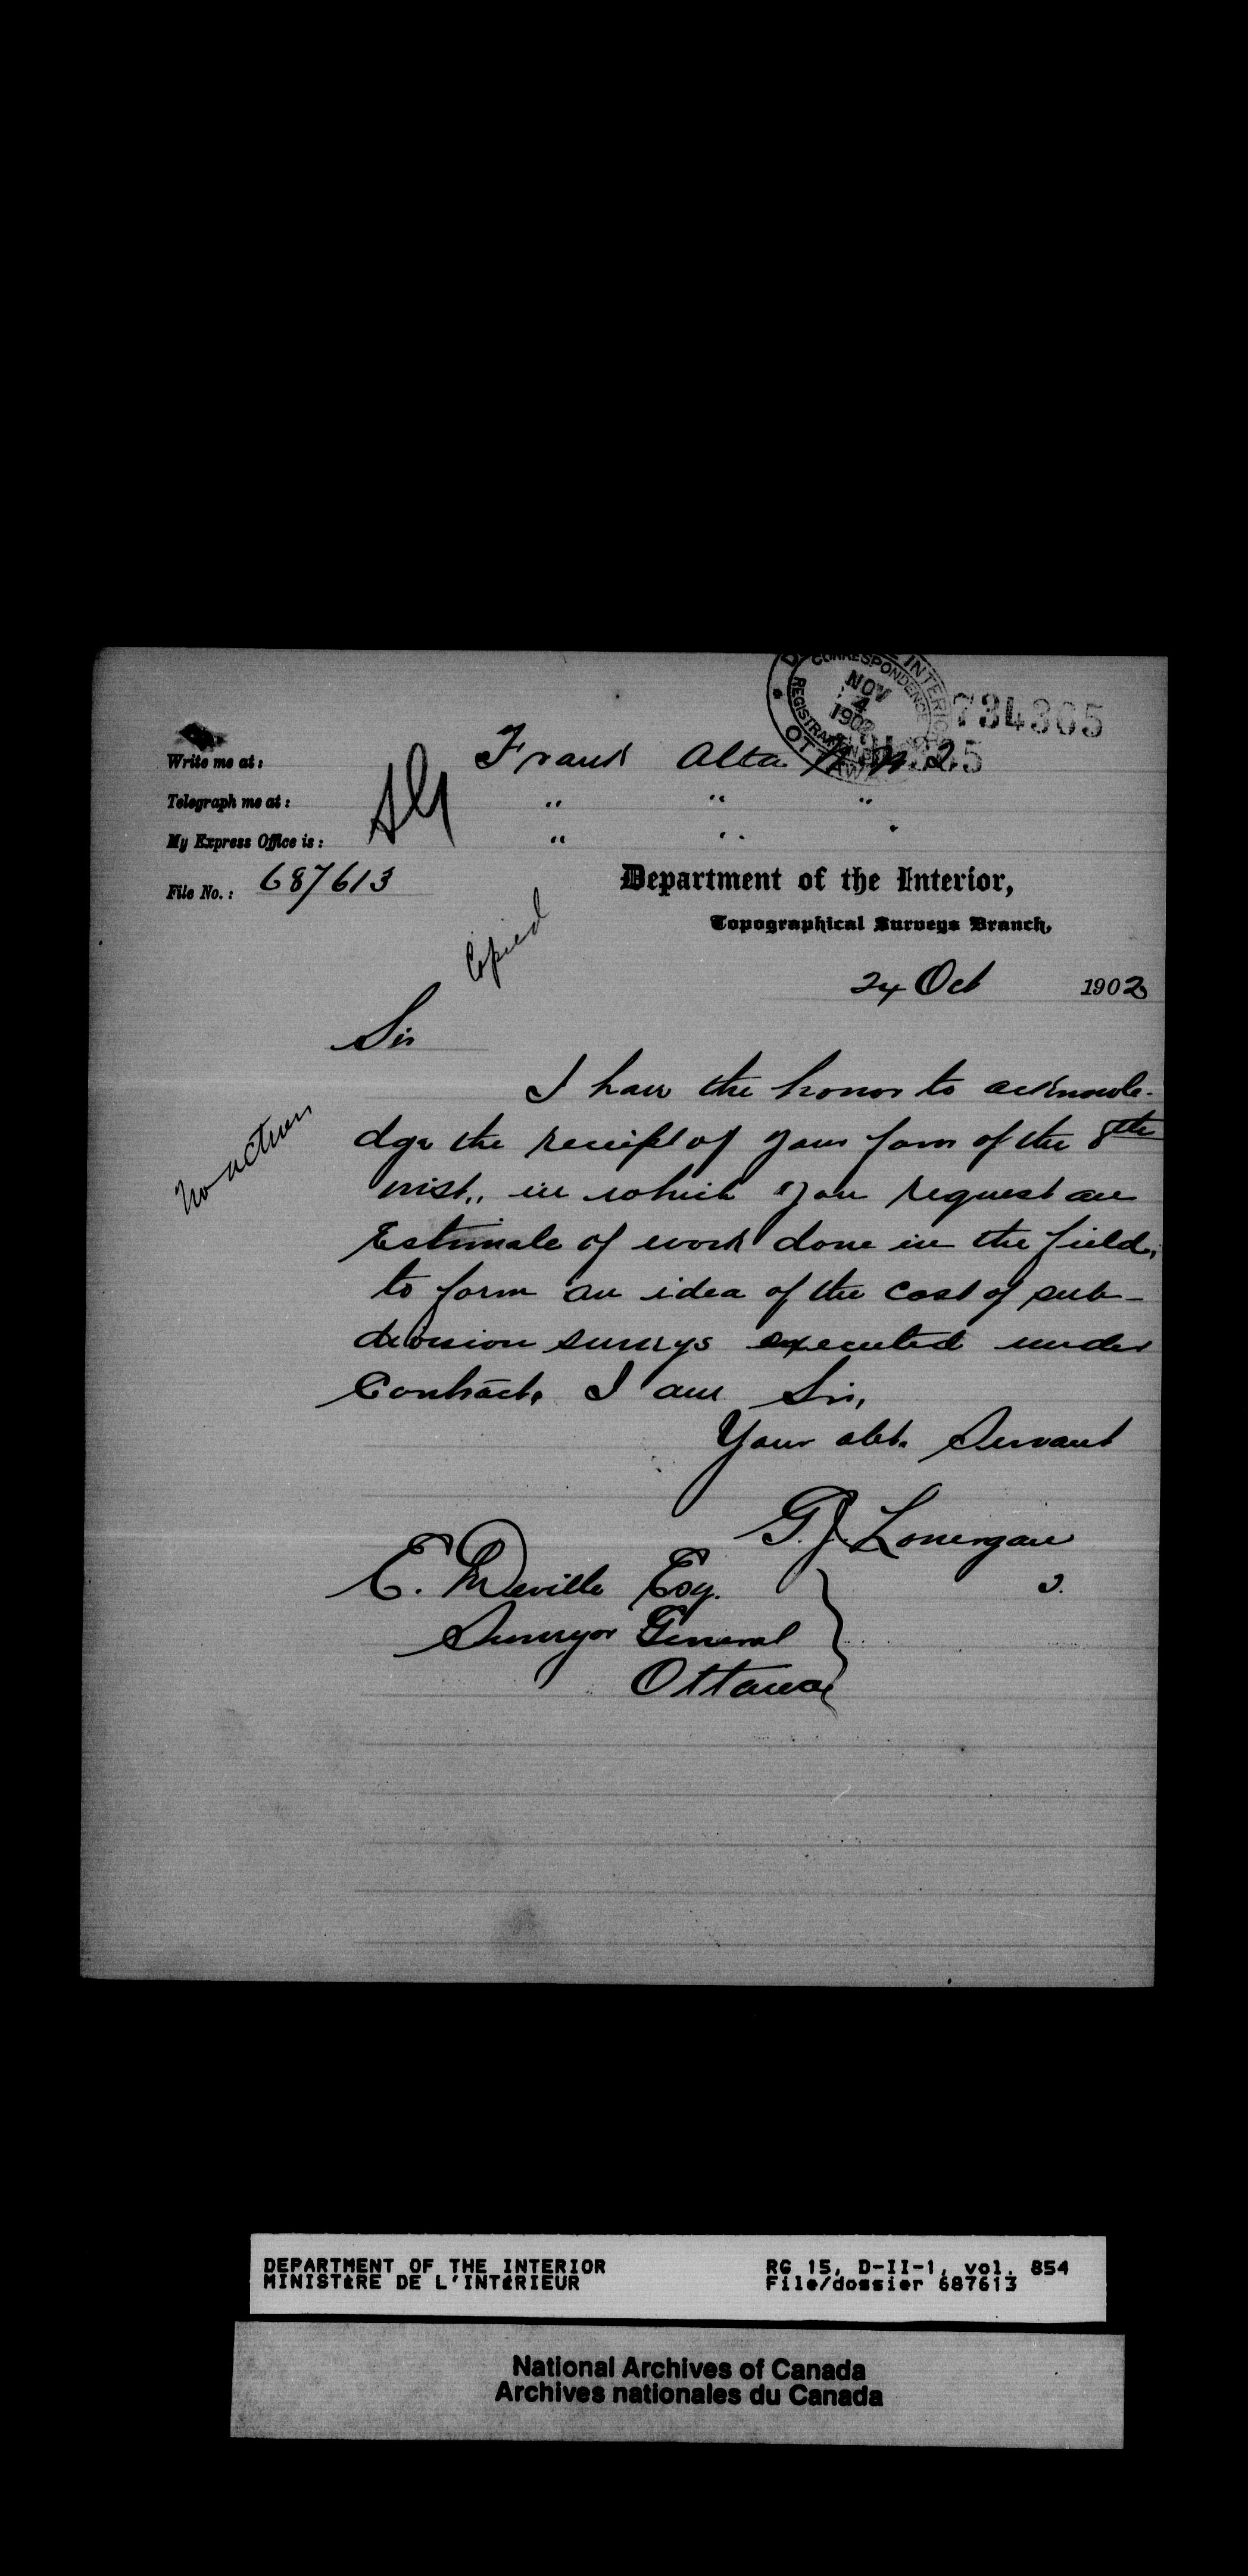 DEPARTMENT OF THE INTERIOR
CORRESPONDENCE
REGISTRATION
NOV
4
1902
OTTAWA
734365
Write me at: Frank Alta N.W.T.
Telegraph me at: " " "
My Express Office is: " " "
File No.: 687613
Department of the Interior,
Topographical Surveys Branch,
Copied
24 Oct 1902
Sir
I have the honor to acknowle-
dge the receipt of your form of the 8th
inst., in which you request an
Estimate of work done in the field,
to form an idea of the cost of sub-
division surveys executed under
Contract. I am Sir,
No action
Your obt. Servant
G.J. Lonergan
E. Deville Esq.
Surveyor General
Ottawa
DEPARTMENT OF THE INTERIOR RG 15, D-II-1, vol. 854
MINISTÈRE DE L'INTÉRIEUR File/dossier 687613
National Archives of Canada
Archives nationales du Canada